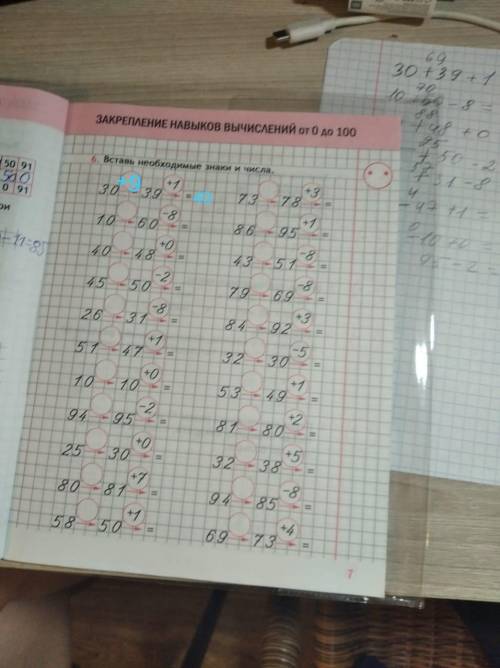 ЗАКРЕПЛЕНИЕ НАВЫКОВ ВЫЧИСЛЕНИЙ от 0 до 100
6. Вставь необходимые знаки и числа.
30 +9 39 +1 = 40
10 60 -8 =
40 48 +0 =
45 50 -2 =
26 31 -8 =
51 47 +1 =
10 10 +0 =
94 95 -2 =
25 30 +0 =
80 81 +7 =
58 50 +1 =
73 78 +3 =
86 95 +1 =
43 51 -8 =
79 69 -8 =
84 92 +3 =
32 30 -5 =
53 49 +1 =
81 80 +2 =
32 38 +5 =
94 85 -8 =
69 73 +4 =
7
50 91
0 91
69
30 + 39 + 1